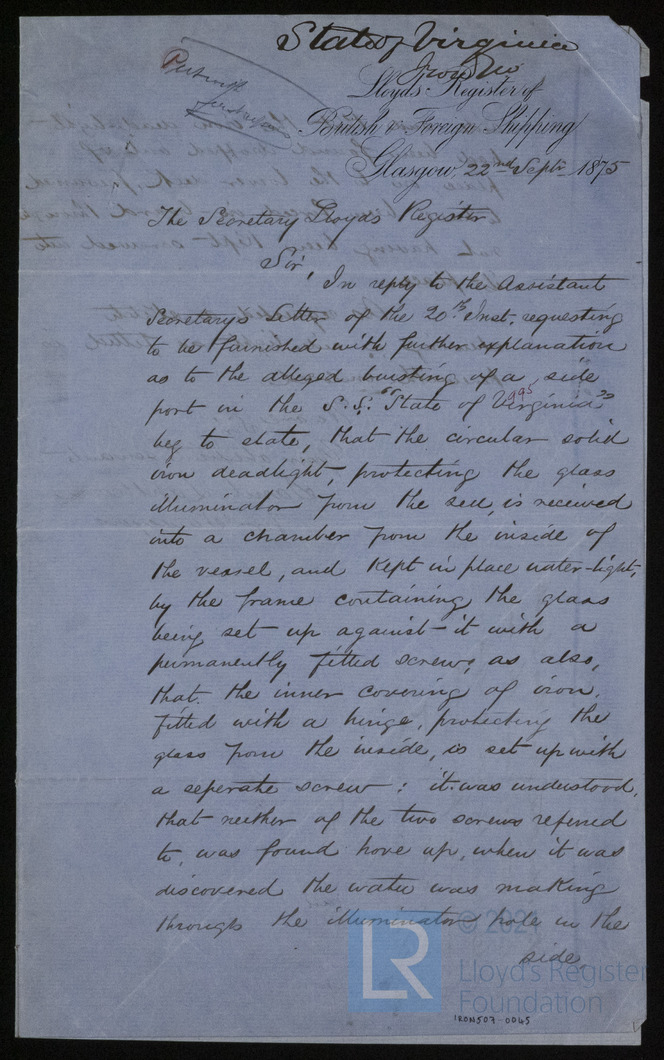 State of Virginia
Iron No
Lloyd's Register of
British & Foreign Shipping
Glasgow, 22nd Septr 1875
The Secretary Lloyds Register
Sir,
In reply to the Assistant
Secretary's Letter of the 20th Inst. requesting
to be furnished with further explanation
as to the alleged bursting of a side
port in the S.S. "State of Virginia"
995
beg to state, that the circular solid
iron deadlight, protecting the glass
illuminator from the sea, is received
into a chamber from the inside of
the vessel, and kept in place water-tight,
by the frame containing the glass
being set up against it with a
permanently fitted screw, as also,
that the inner covering of iron,
fitted with a hinge, protecting the
glass from the inside, is set up with
a seperate screw: it was understood,
that neither of the two screws referred
to, was found hove up, when it was
discovered the water was making
through the illuminator hole in the
side
LR
© 202
Lloyd's Register
Foundation
IRON507-0045